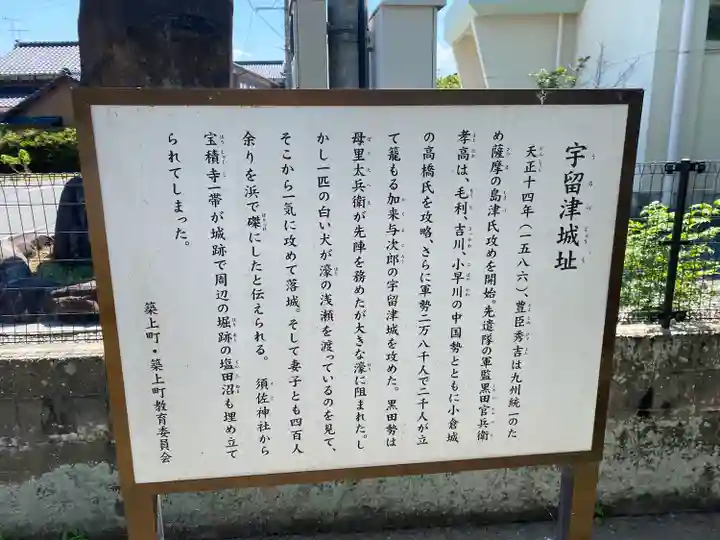 宇留津城址
天正十四年(一五八六)、豊臣秀吉は九州統一のた
め薩摩の島津氏攻めを開始。先遣隊の軍監黒田官兵衛
孝高は、毛利、吉川、小早川の中国勢とともに小倉城
の高橋氏を攻略、さらに軍勢二万八千人で二千人が立
て籠もる加来与次郎の宇留津城を攻めた。黒田勢は
母里太兵衛が先陣を務めたが大きな濠に阻まれた。し
かし一匹の白い犬が濠の浅瀬を渡っているのを見て、
そこから一気に攻めて落城。そして妻子とも四百人
余りを浜で磔にしたと伝えられる。 須佐神社から
宝積寺一帯が城跡で周辺の堀跡の塩田沼も埋め立て
られてしまった。
築上町・築上町教育委員会